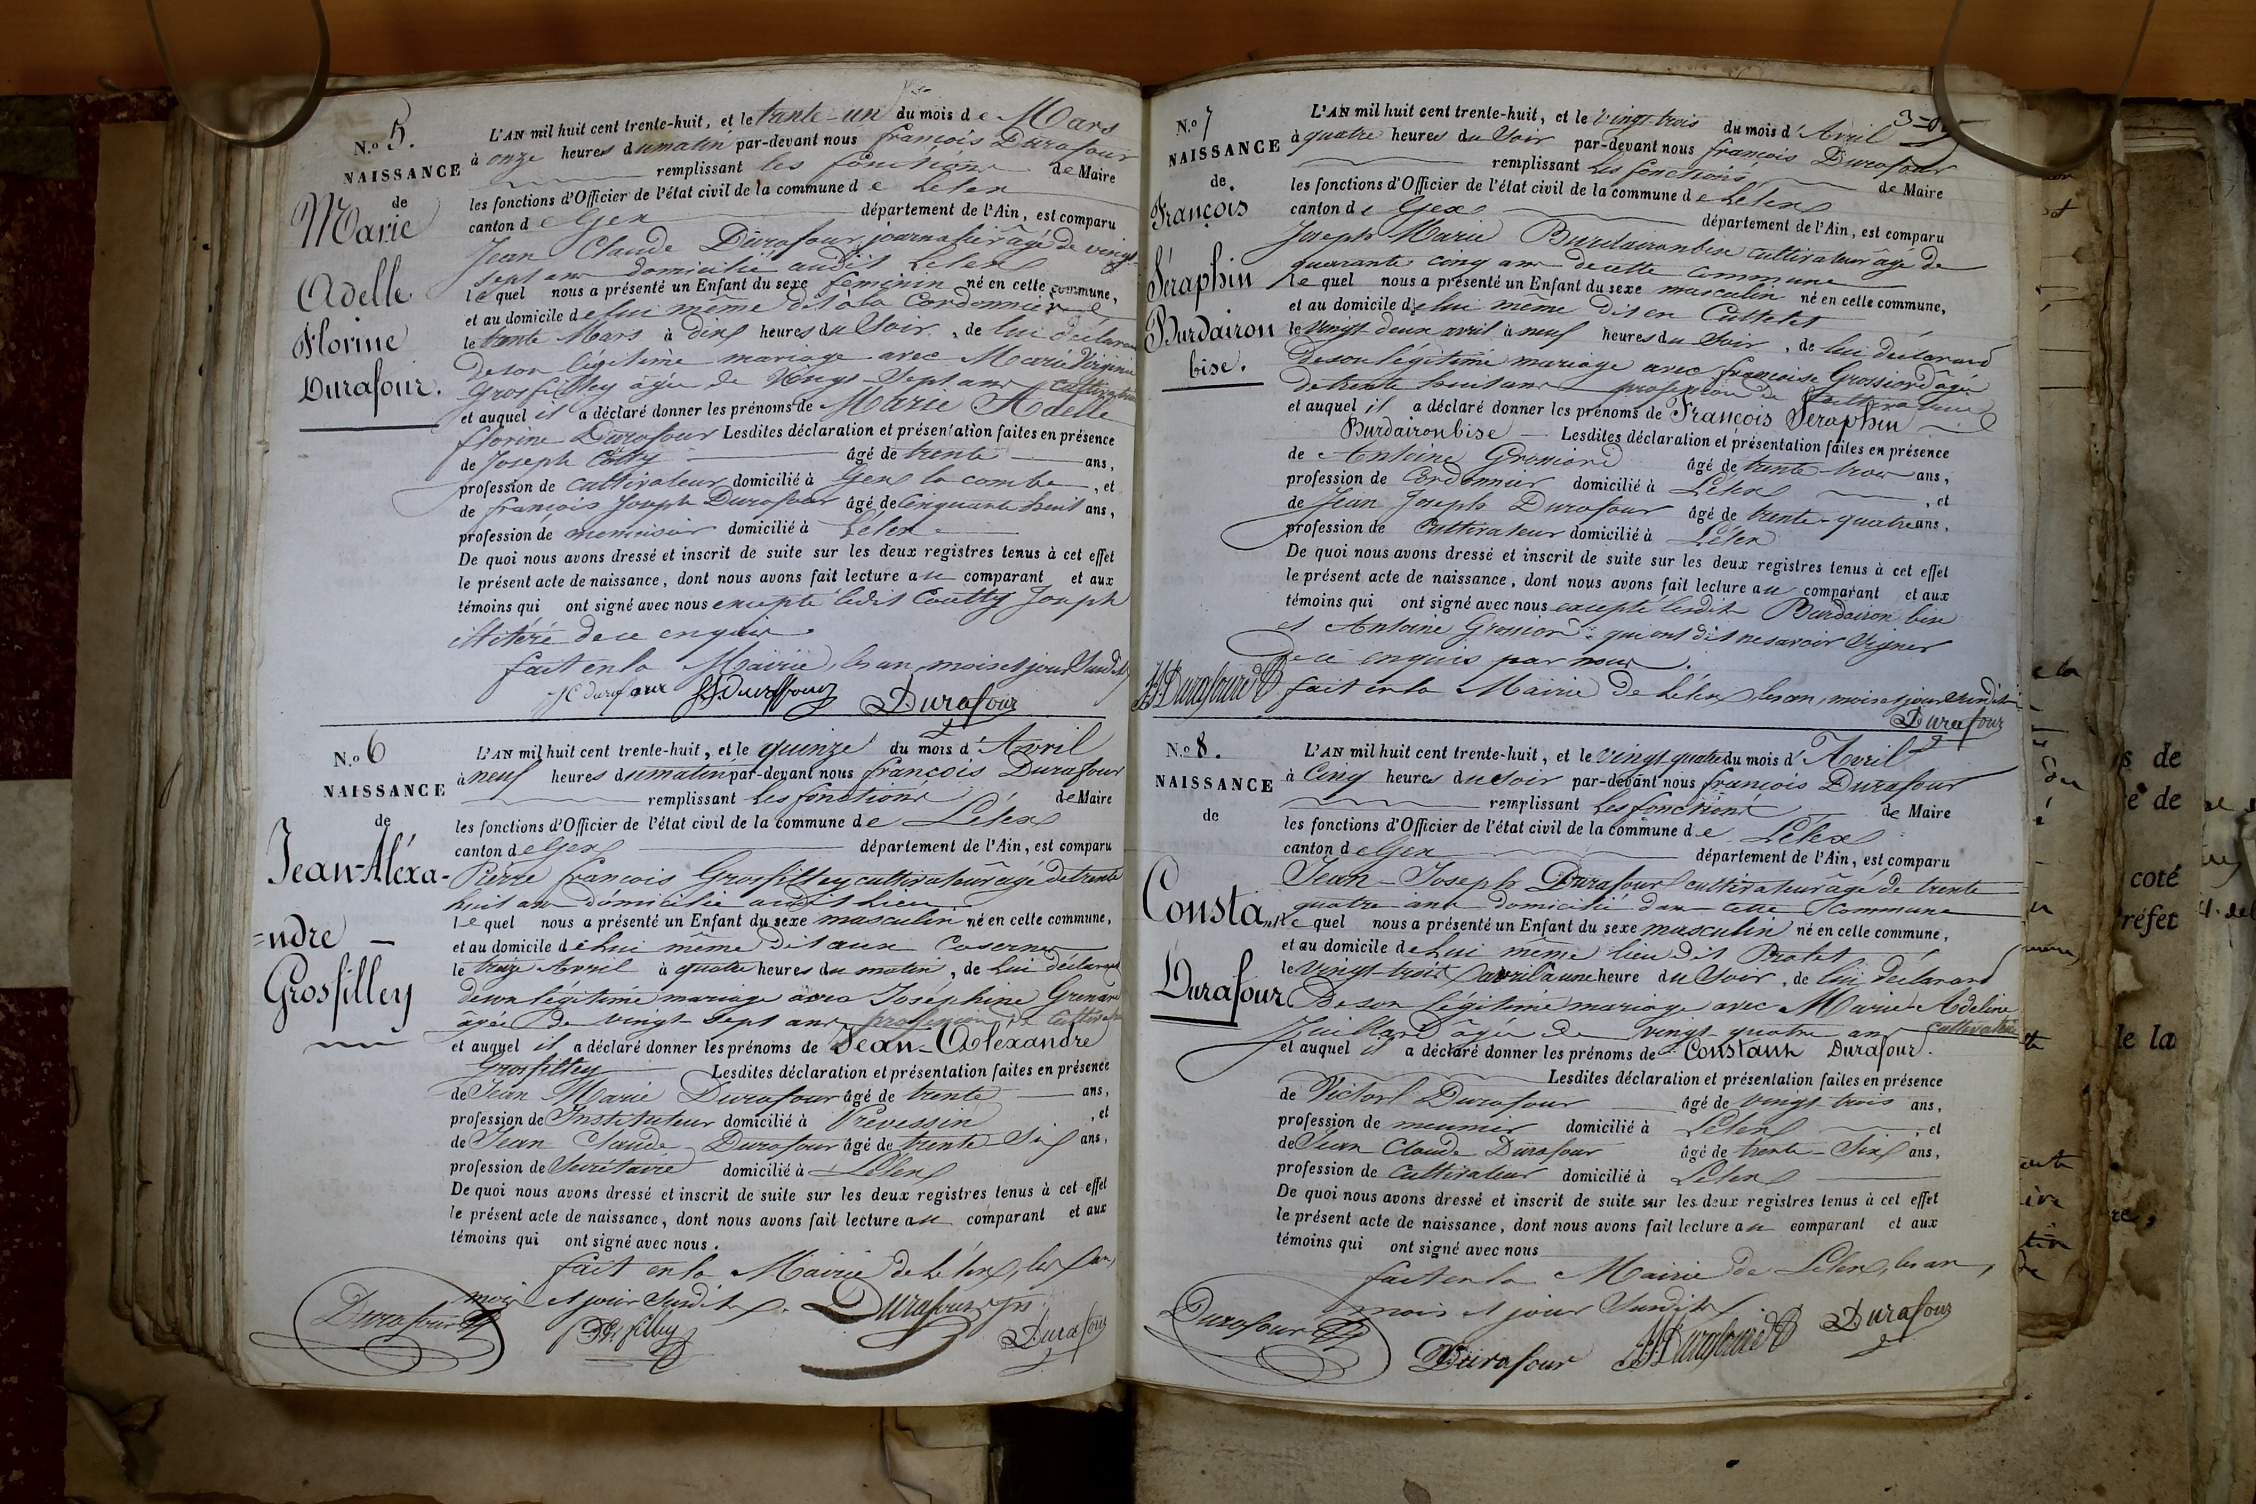 N.o 5.
NAISSANCE
de
Marie
Adelle
Florine
Durafour.
L'AN mil huit cent trente-huit, et le trente-un du mois de Mars
à onze heures du matin par-devant nous françois Durafour
remplissant les fonctions de Maire
les fonctions d'Officier de l'état civil de la commune de Lelex
canton de Gex département de l'Ain, est comparu
Jean Claude Durafour journalier âgé de vingt
sept ans domicilié audit Lelex
lequel nous a présenté un Enfant du sexe feminin né en cette commune,
et au domicile de lui même dit à la Cordonnière
le trente Mars à dix heures du Soir, de lui déclarant
de son légitime mariage avec Marie Virginie
Grosfilley âgée de Vingt-Sept ans cultivatrice
et auquel il a déclaré donner les prénoms de Marie Adelle
florine Durafour Lesdites déclaration et présentation faites en présence
de Joseph Cotty âgé de trente ans,
profession de cultivateur domicilié à Gex la combe, et
de françois Joseph Durafour âgé de Cinquante huit ans,
profession de domicilié à Lelex
De quoi nous avons dressé et inscrit de suite sur les deux registres tenus à cet effet
le présent acte de naissance, dont nous avons fait lecture au comparant et aux
témoins qui ont signé avec nous excepté ledit Coutty Joseph
illitéré de ce enquis.
fait en la Mairie, les an, mois et jour Susdits
JC durafour Durafour
N.o 6
NAISSANCE
de
Jean-Aléxa-
=ndre
Grosfilley
L'AN mil huit cent trente-huit, et le quinze du mois d'Avril
à neuf heures du matin par-devant nous françois Durafour
remplissant les fonctions de Maire
les fonctions d'Officier de l'état civil de la commune de Lélex
canton de Gex département de l'Ain, est comparu
Pierre françois Grosfilley cultivateur âgé de trente
huit ans domicilié audit lieu
lequel nous a présenté un Enfant du sexe masculin né en cette commune,
et au domicile de Lui même dit aux Casernes
le treize Avril à quatre heures du matin, de Lui déclarant
de son légitime mariage avec Joséphine Grenard
âgée de vingt-Sept ans profession de cultivatrice
et auquel il a déclaré donner les prénoms de Jean-Alexandre
Grosfilley Lesdites déclaration et présentation faites en présence
de Jean Marie Durafour âgé de trente ans,
profession de Instituteur domicilié à Prevessin, et
de Jean Claude Durafour âgé de trente Six ans,
profession de Secrétaire domicilié à Lelex
De quoi nous avons dressé et inscrit de suite sur les deux registres tenus à cet effet
le présent acte de naissance, dont nous avons fait lecture au comparant et aux
témoins qui ont signé avec nous.
fait en la Mairie de Lélex, les an,
mois et jour Susdits.
Durafour Durafour Durafour
N.o 7
NAISSANCE
de
François
Séraphin
Burdairon
bise.
L'AN mil huit cent trente-huit, et le vingt-trois du mois d'Avril
à quatre heures du Soir par-devant nous françois Durafour
remplissant les fonctions de Maire
les fonctions d'Officier de l'état civil de la commune de Lelex
canton de Gex département de l'Ain, est comparu
Joseph Marie Burdaironbise cultivateur âgé de
quarante cinq ans de cette commune
lequel nous a présenté un Enfant du sexe masculin né en cette commune,
et au domicile de lui même dit en Cuttetet
le Vingt-deux avril à neuf heures du Soir, de lui déclarant
de son légitime mariage avec françoise Grossiord âgée
de trente huit ans profession de Cultivatrice
et auquel il a déclaré donner les prénoms de François Seraphin
Burdaironbise Lesdites déclaration et présentation faites en présence
de Antoine Grossiord âgé de trente-trois ans,
profession de Cordonnier domicilié à Lélex, et
de Jean Joseph Durafour âgé de trente-quatre ans,
profession de Cultivateur domicilié à Lélex
De quoi nous avons dressé et inscrit de suite sur les deux registres tenus à cet effet
le présent acte de naissance, dont nous avons fait lecture au comparant et aux
témoins qui ont signé avec nous excepté lesdits Burdairon bise
et Antoine Grossiord qui ont dit ne savoir Signer
de ce enquis par nous.
fait en la Mairie de Lélex, les an, mois et jour Susdits
Durafour
N.o 8.
NAISSANCE
de
Constant
Durafour
L'AN mil huit cent trente-huit, et le vingt quatre du mois d'Avril
à Cinq heures du soir par-devant nous françois Durafour
remplissant les fonctions de Maire
les fonctions d'Officier de l'état civil de la commune de Lélex
canton de Gex département de l'Ain, est comparu
Jean-Joseph Durafour cultivateur âgé de trente
quatre ans domicilié dans cette Commune
le quel nous a présenté un Enfant du sexe masculin né en cette commune,
et au domicile de Lui même lieu dit Brotet
le vingt-trois avril à une heure du Soir, de lui déclarant
de son légitime mariage avec Marie Adeline
Juillard âgée de vingt quatre ans cultivatrice
et auquel il a déclaré donner les prénoms de Constant Durafour.
Lesdites déclaration et présentation faites en présence
de Victor Durafour âgé de vingt-trois ans,
profession de meunier domicilié à Lélex, et
de Jean Claude Durafour âgé de trente-Six ans,
profession de Cultivateur domicilié à Lelex
De quoi nous avons dressé et inscrit de suite sur les deux registres tenus à cet effet
le présent acte de naissance, dont nous avons fait lecture au comparant et aux
témoins qui ont signé avec nous
fait en la Mairie de Lelex, les an,
mois et jour Susdits
Durafour Durafour Durafour